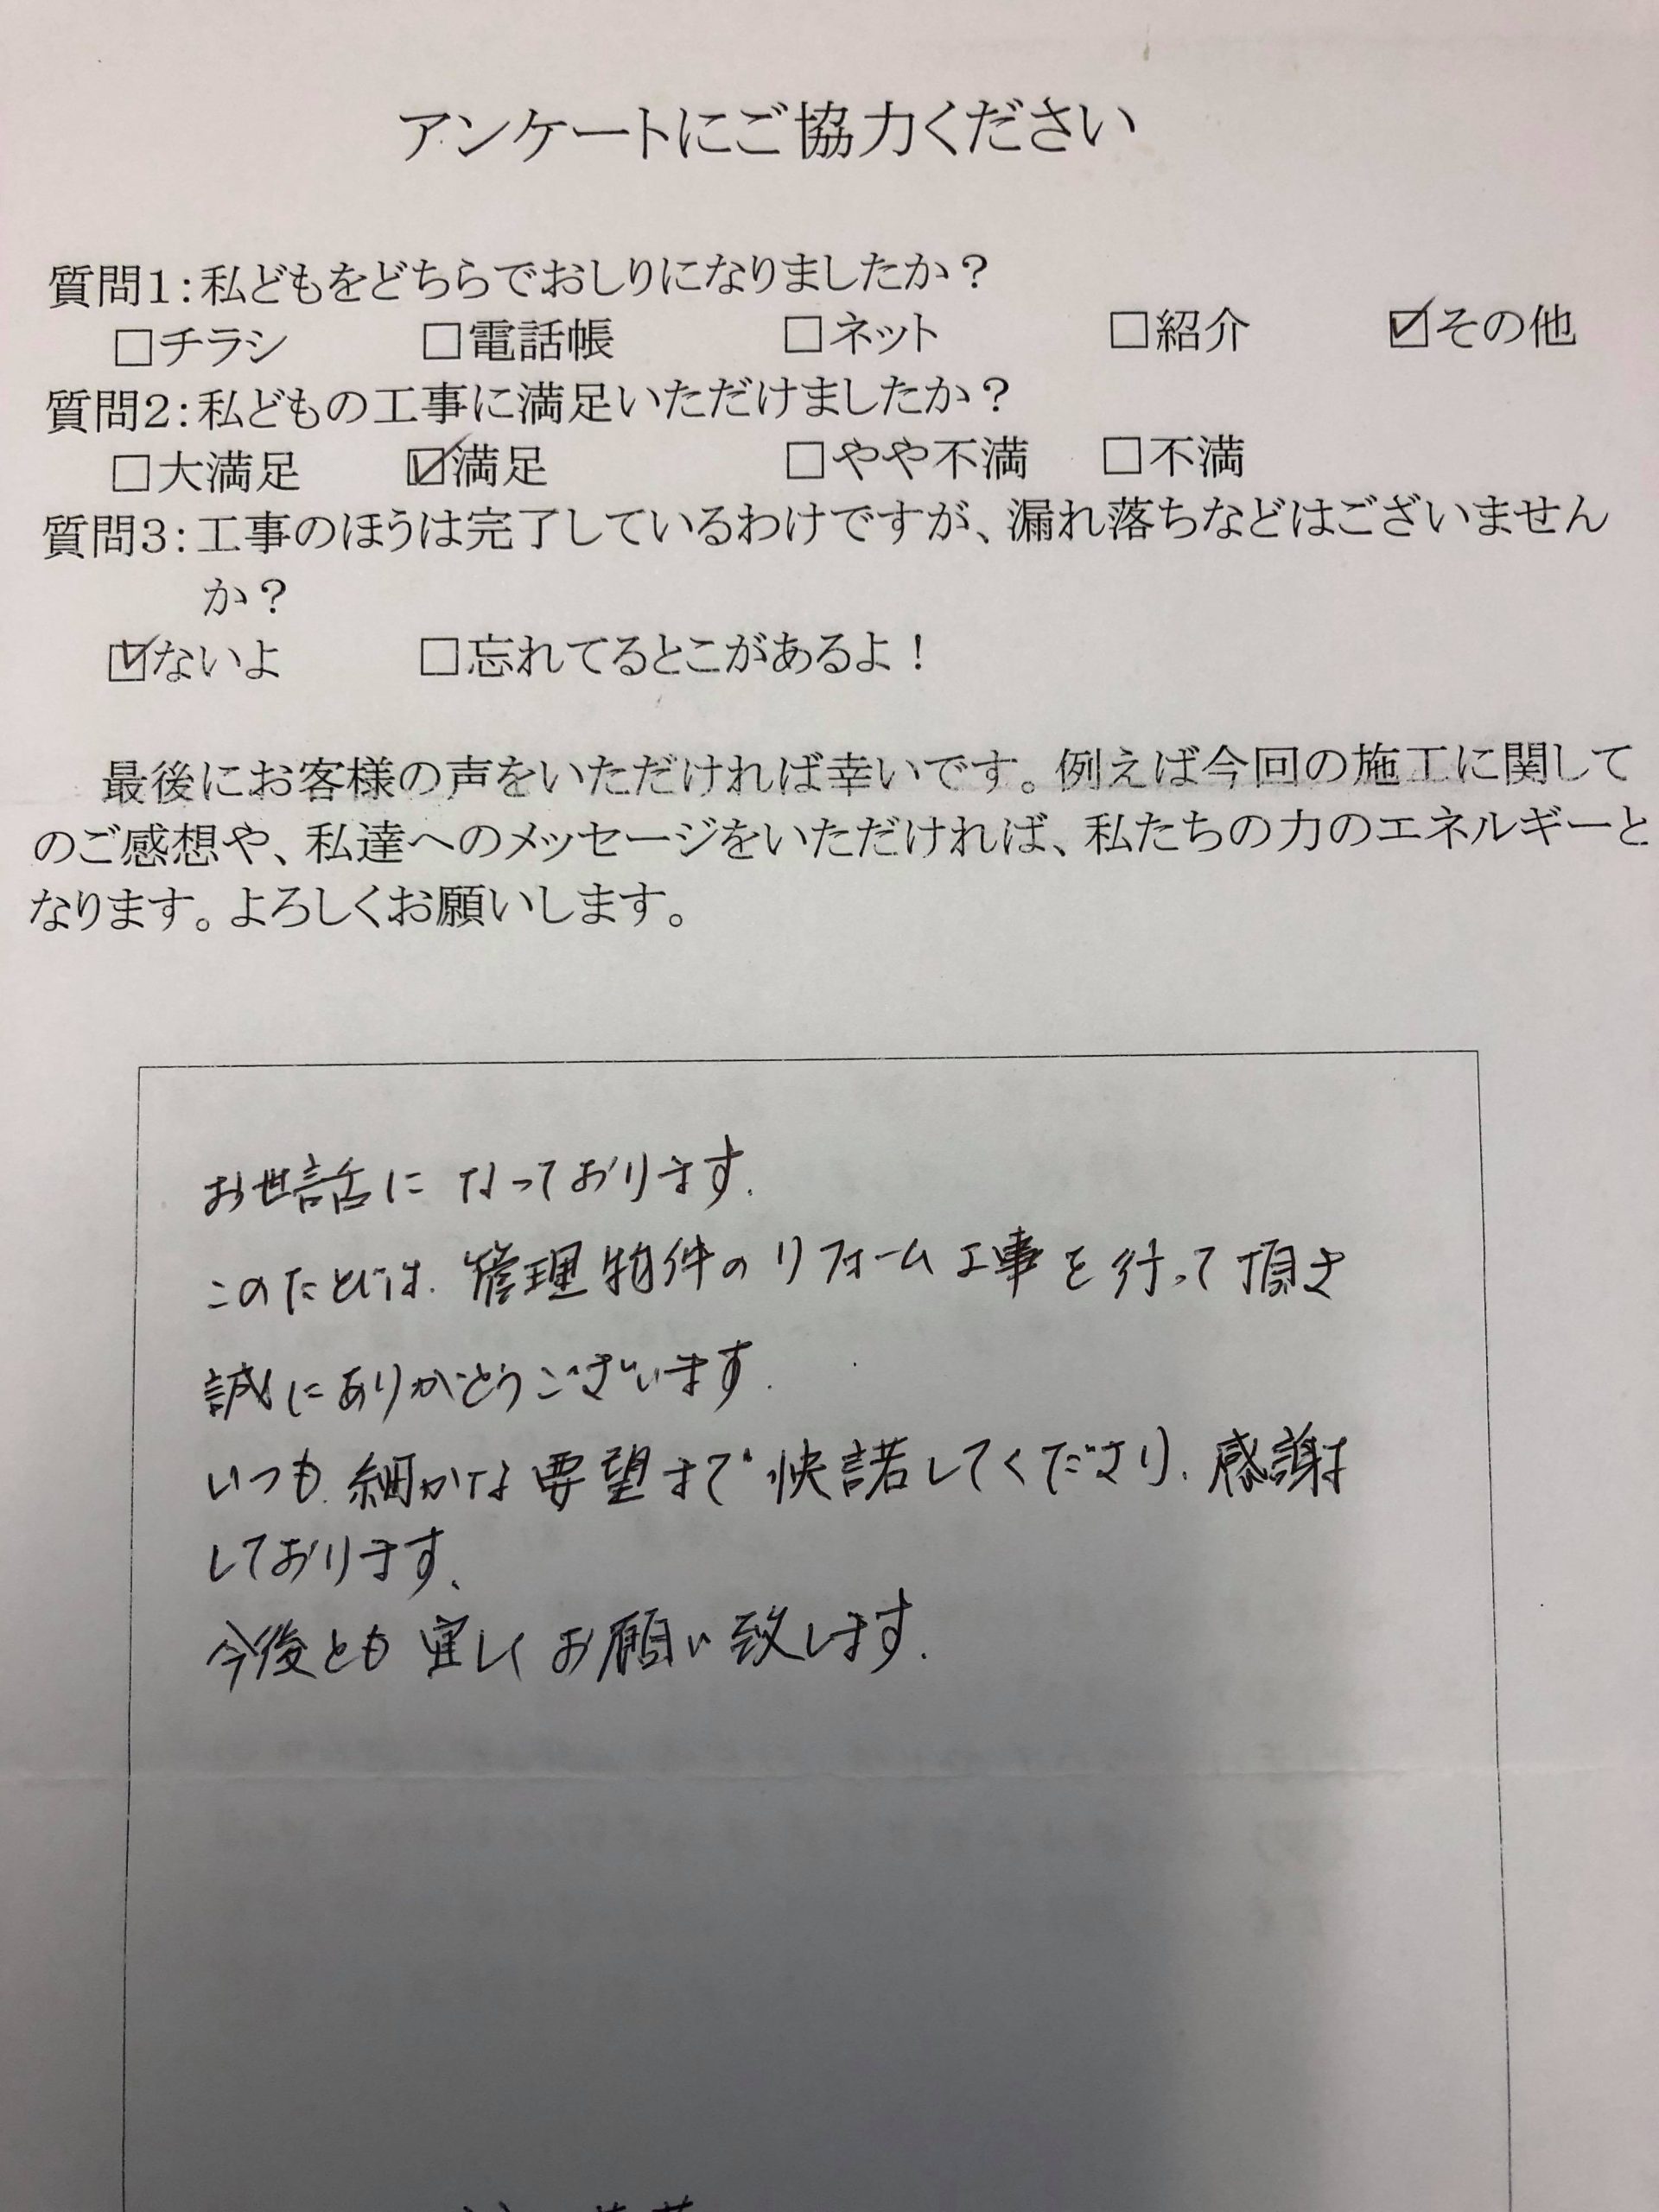 アンケートにご協力ください
質問1：私どもをどちらでおしりになりましたか？
□チラシ □電話帳 □ネット □紹介 ☑その他
質問2：私どもの工事に満足いただけましたか？
□大満足 ☑満足 □やや不満 □不満
質問3：工事のほうは完了しているわけですが、漏れ落ちなどはございません
か？
☑ないよ □忘れてるとこがあるよ！
最後にお客様の声をいただければ幸いです。例えば今回の施工に関して
のご感想や、私達へのメッセージをいただければ、私たちの力のエネルギーと
なります。よろしくお願いします。
お世話になっております。
このたびは、管理物件のリフォーム工事を行って頂き
誠にありがとうございます。
いつも、細かな要望まで快諾してくださり、感謝
しております。
今後とも宜しくお願い致します。